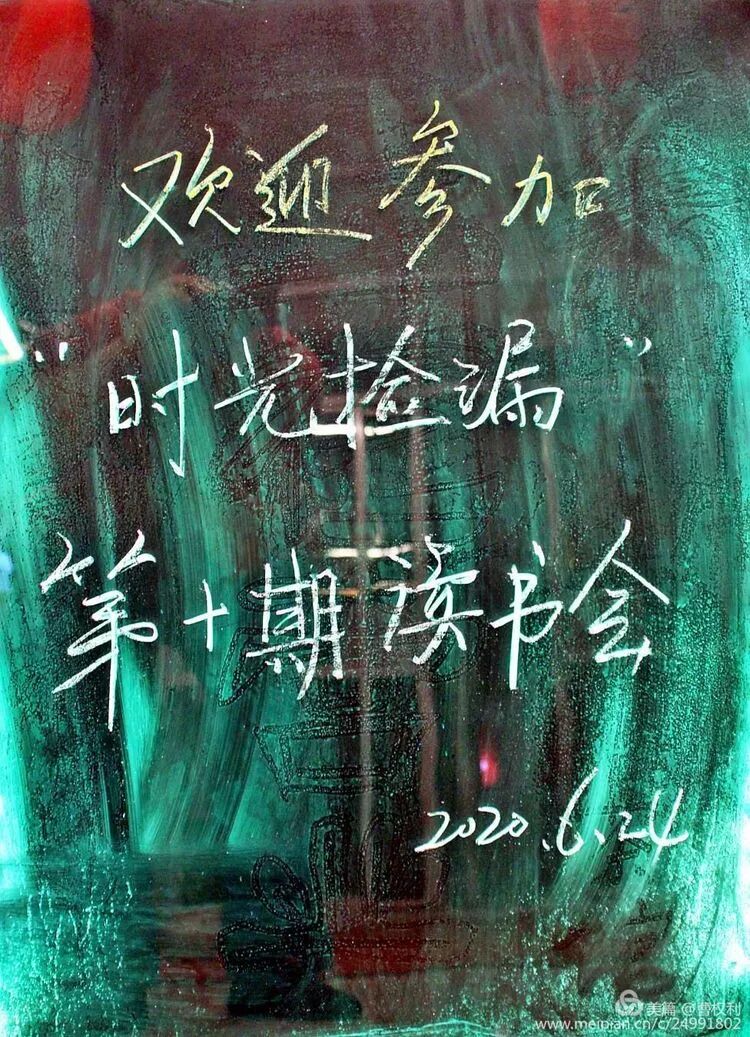 欢迎参加
"时光捡漏"
第十期读书会
2020.6.24
美篇 @曹权利
www.meipian.cn/c/24991802